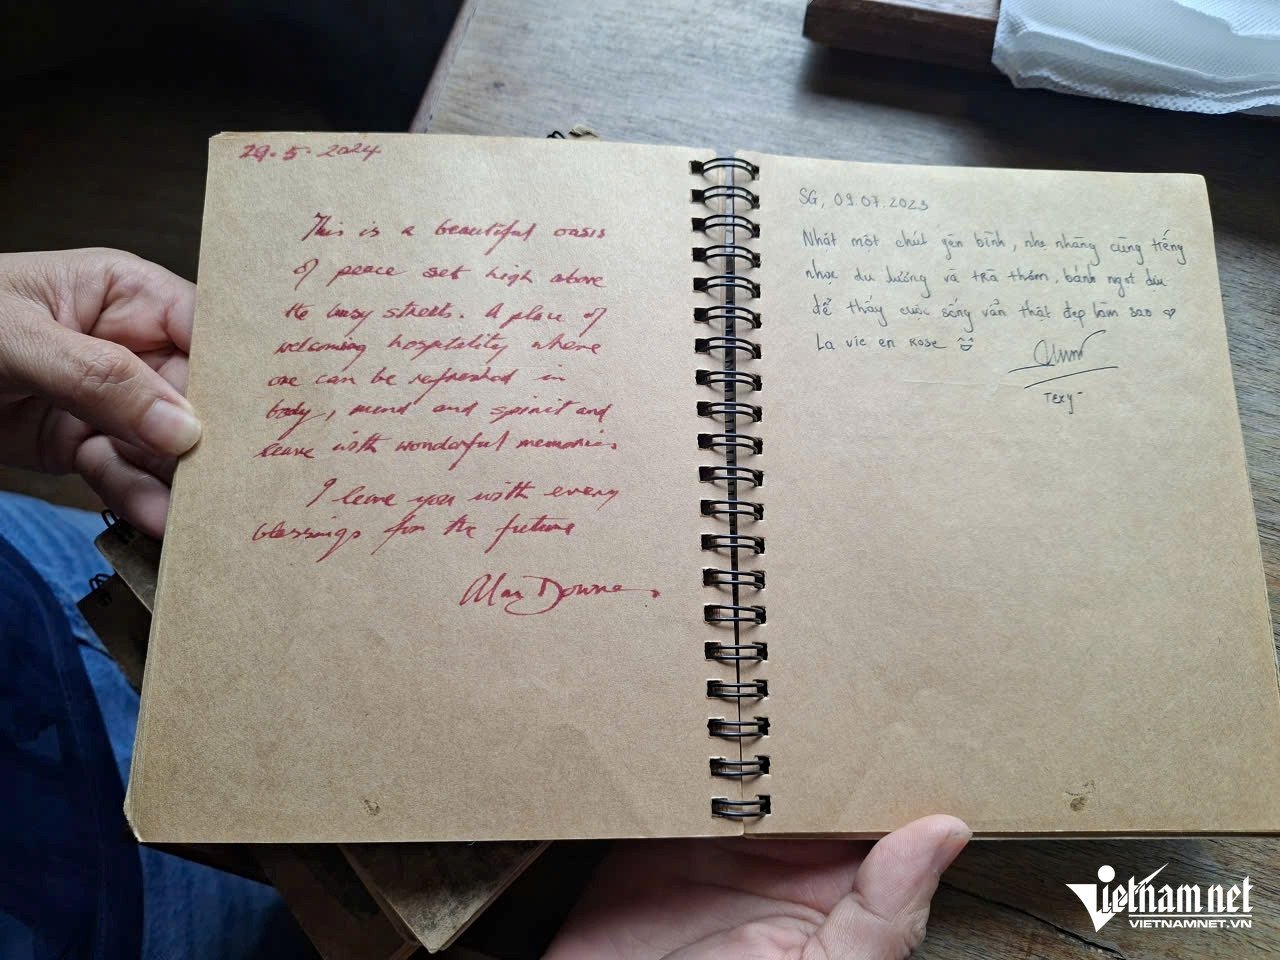 29.5.2024
This is a beautiful oasis
of peace set high above
the busy streets. A place of
welcoming hospitality where
one can be refreshed in
body, mind and spirit and
leave with wonderful memories.
I leave you with every
blessings for the future
Alan Downe.
SG, 09.07.2023
Nhặt một chút yên bình, nhẹ nhàng cùng tiếng
nhạc du dương và trà thơm, bánh ngọt dịu
để thấy cuộc sống vẫn thật đẹp làm sao ♡
La vie en Rose
Texy
Vietnamnet
VIETNAMNET.VN